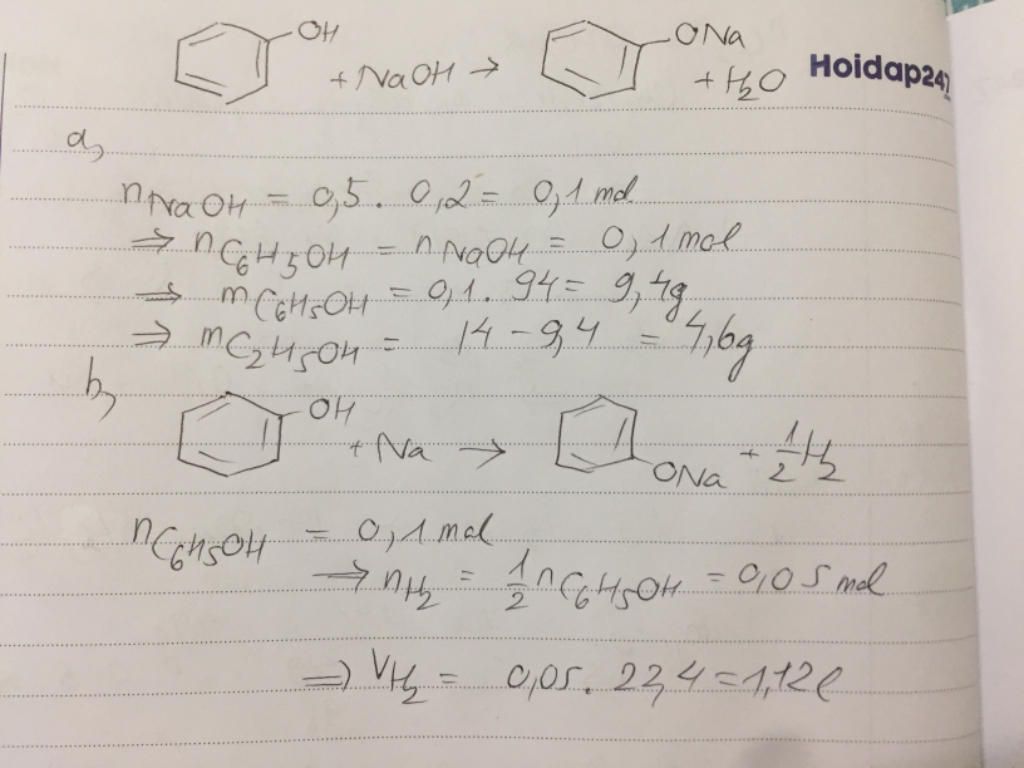 OH + NaOH → ONa + H₂O
Hoidap247
a,
nNaOH = 0,5 . 0,2 = 0,1 mol
⇒ nC₆H₅OH = nNaOH = 0,1 mol
⇒ mC₆H₅OH = 0,1 . 94 = 9,4g
⇒ mC₂H₅OH = 14 - 9,4 = 4,6g
b,
OH + Na → ONa + 1/2 H₂
nC₆H₅OH = 0,1 mol
⇒ nH₂ = 1/2 nC₆H₅OH = 0,05 mol
⇒ VH₂ = 0,05 . 22,4 = 1,12l